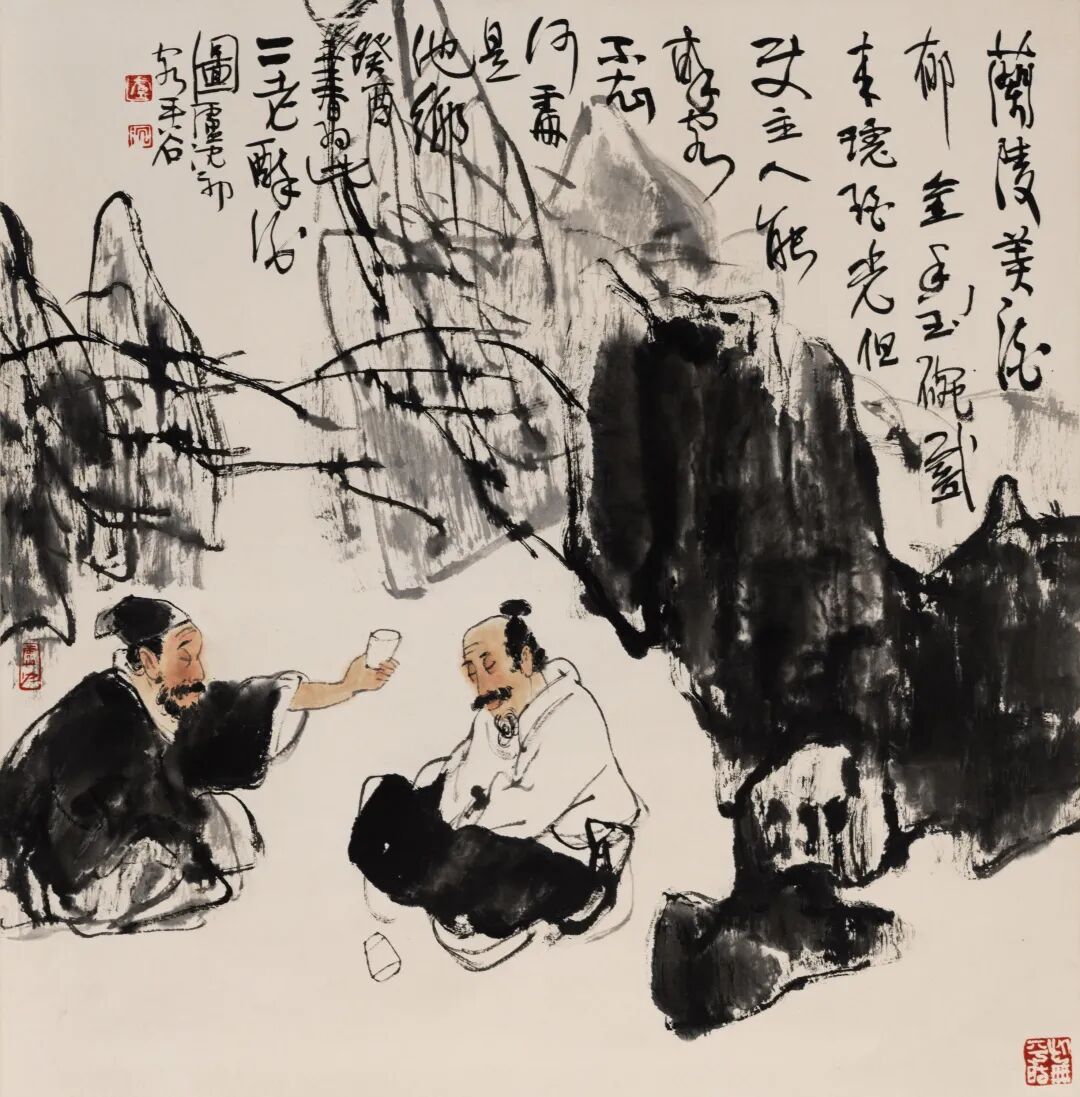 蘭陵美酒
郁金香玉碗盛
来琥珀光但
使主人能
醉客
不知
何處
是
他鄉
癸酉
二老醉酒
圖盧沈
平谷